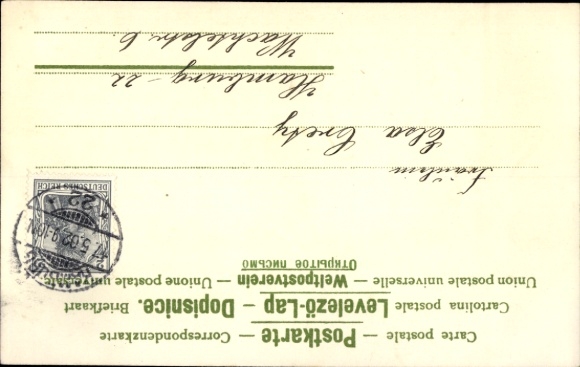 Carte postale — Postkarte — Correspondenzkarte
Cartolina postale Levelező-Lap – Dopisnice. Briefkaart
Union postale universelle — Weltpostverein — Unione postale universale
Открытое письмо
DEUTSCHES REICH
HAMBURG
5.02.
22
Fräulein
Elsa
Hamburg – 22
Wachtelstr. 6